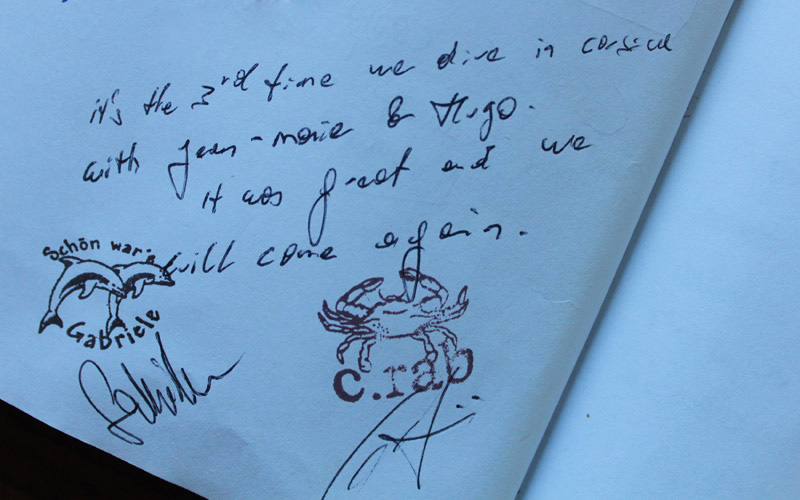 it's the 3rd time we dive in corsica
with jean-marie & Hugo.
it was great and we
will come again.
Schön war's
Gabriele
c.rab